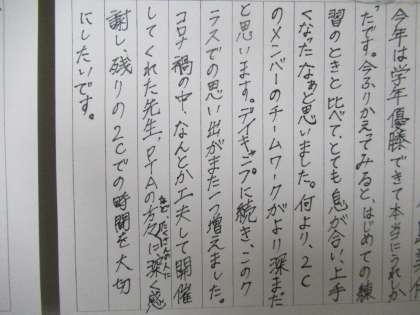 今年は学年優勝できて本当にうれしか
ったです。今ふりかえてみると、はじめての練
習のときと比べて、とても息が合い、上手
くなったなぁと思いました。何より、2C
のメンバーのチームワークがより深まだ
と思います。デイキャンプに続き、このク
ラスでの思い出がまた一つ増えました。
コロナ禍の中、なんとか工夫して開催
してくれた先生、PTAの方々に深く感
謝し、残りの2Cでの時間を大切
にしたいです。